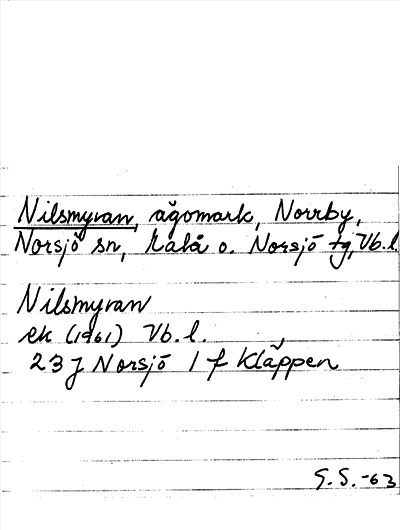 Nilsmyran, ägomark, Norrby,
Norsjö sn, Malå o. Norsjö tg, Vb.l.
Nilsmyran
ek (1961) Vb.l.
23 J Norsjö 1 f Kläppen
G.S. -63